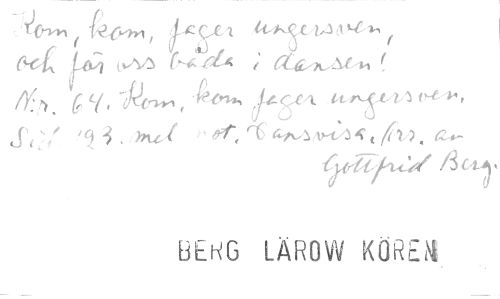 Kom, kom, fager ungersven,
och för oss båda i dansen!
N:r. 64. Kom, kom fager ungersven.
Sid. 193. mel not. Dansvisa. Arr. av
Gottfrid Berg.
BERG LÄROW KÖREN